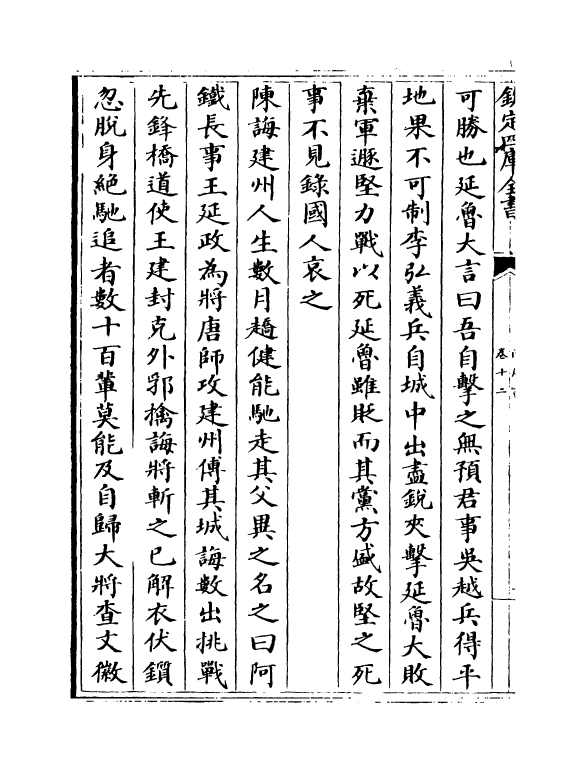 欽定四庫全書
卷十二
可勝也延魯大言曰吾自擊之無預君事吳越兵得平
地果不可制李弘義兵自城中出盡銳夾擊延魯大敗
棄軍遯堅力戰以死延魯雖貶而其黨方盛故堅之死
事不見錄國人哀之
陳誨建州人生數月趫健能馳走其父異之名之曰阿
鐵長事王延政為將唐師攻建州傅其城誨數出挑戰
先鋒橋道使王建封克外郛擒誨將斬之已解衣伏鑕
忽脫身絕馳追者數十百輩莫能及自歸大將查文徽